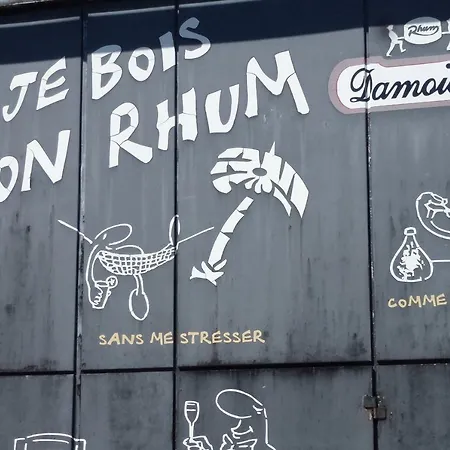 JE BOIS
ON RHUM
Rhum
Damoi
SANS ME STRESSER
COMME